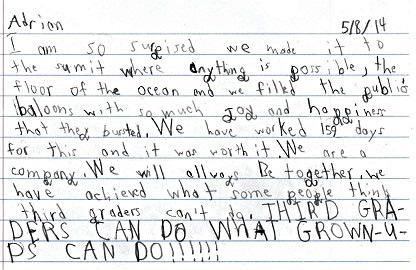 Adrian 5/8/14
I am so surgised we made it to
the sumit where anything is possible, the
floor of the ocean and we filled the public
baloons with so much joy and happiness
that they busted. We have worked 159 days
for this and it was worth it. We are a
company. We will allways Be together, we
have achieved what some people think
third graders can't do. THIRD GRA-
DERS CAN DO WHAT GROWN-U-
PS CAN DO!!!!!!